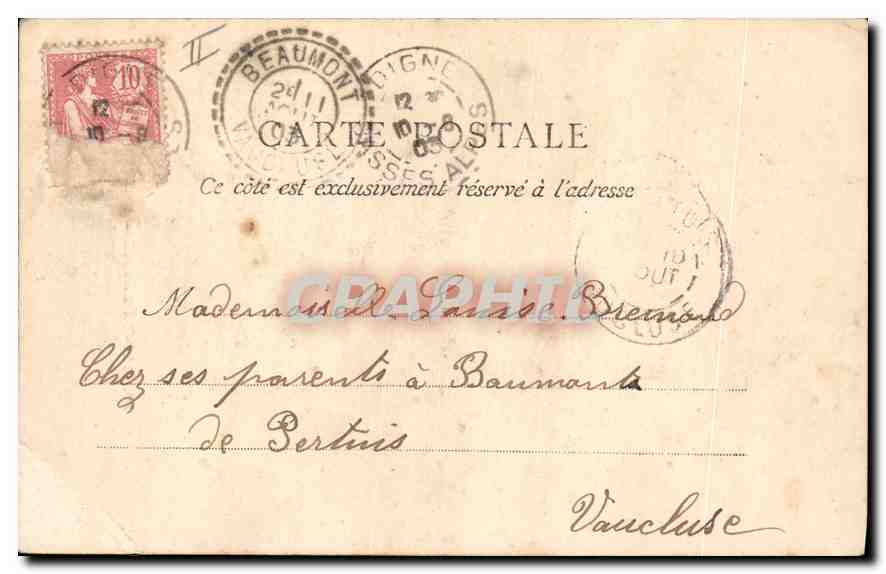 10
II
BEAUMONT
VAUCLUSE
DIGNE
12
BASSES ALPES
CARTE POSTALE
Ce côté est exclusivement réservé à l'adresse
CLUSE
CPAPHIL
Mademoiselle Louise Bremond
Chez ses parents à Baumont
de Pertuis
Vaucluse